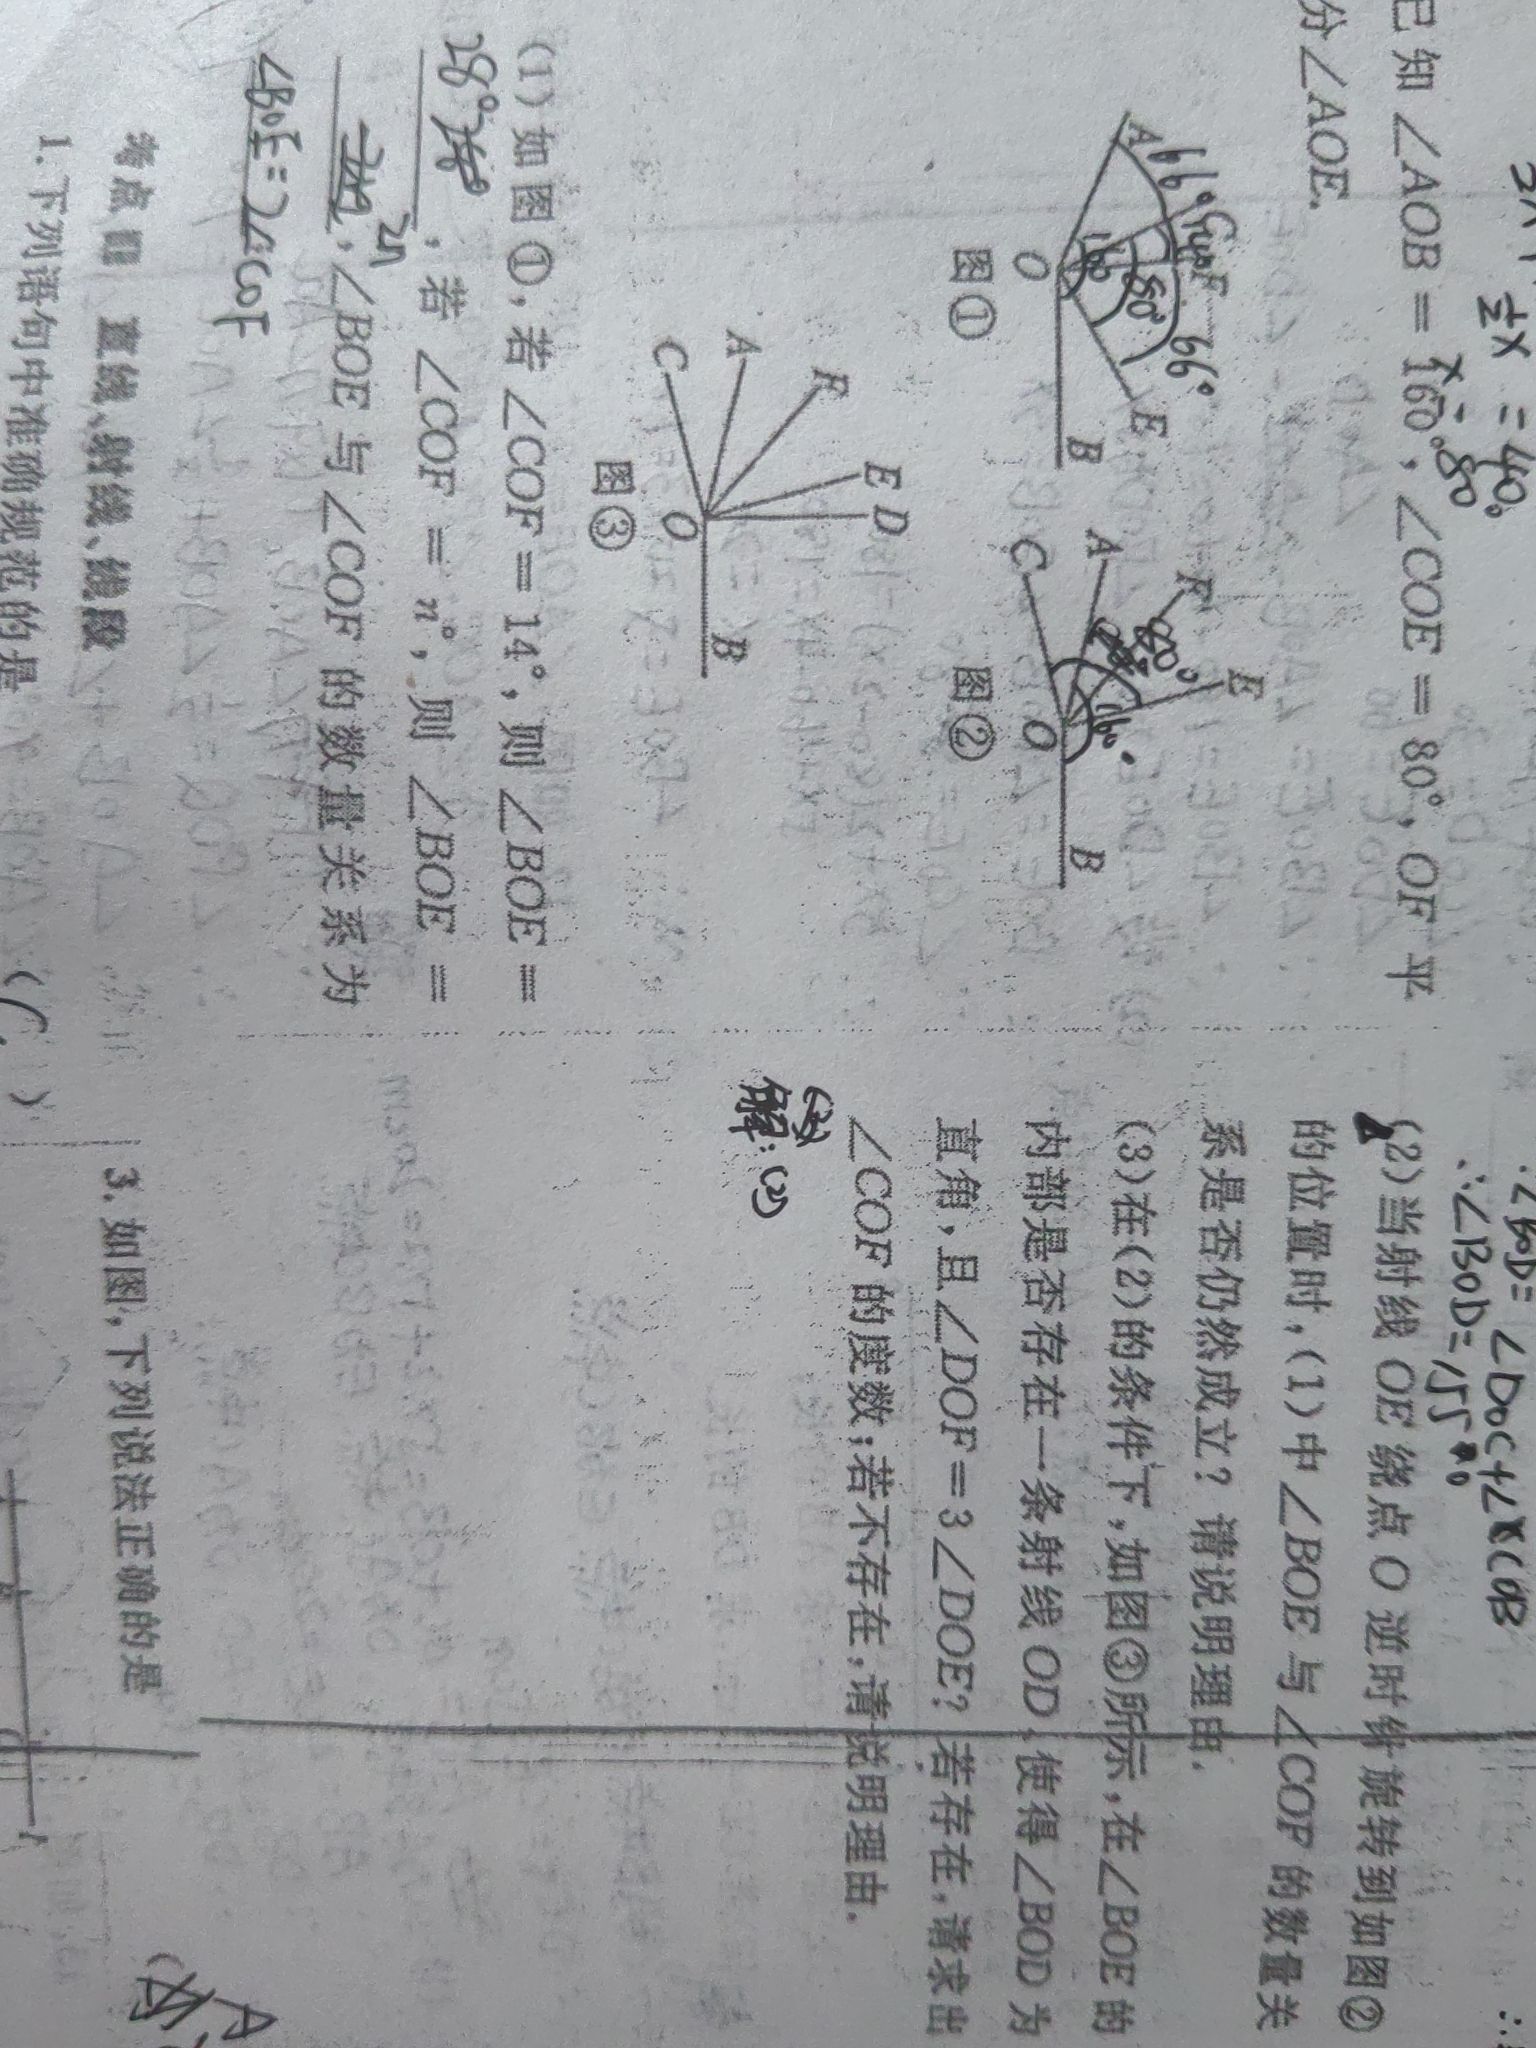 ½x = 40°
x = 80
已知 ∠AOB = 160°, ∠COE = 80°, OF 平
分∠AOE.
A 66° C 14° F 66° E
160 80°
O B
图①
C A F E
80°
160
O B
图②
C A F E D
O B
图③
(1) 如图①, 若 ∠COF = 14°, 则 ∠BOE =
28°; 若 ∠COF = n°, 则 ∠BOE =
2n; ∠BOE 与 ∠COF 的数量关系为
∠BOE=2∠COF
考点四 直线、射线、线段
1. 下列语句中准确规范的是 ( C )
∴∠BOD= ∠DOC+∠COB
∴∠BOD=155°
(2)当射线 OE 绕点 O 逆时针旋转到如图②
的位置时,(1)中∠BOE 与∠COF 的数量关
系是否仍然成立? 请说明理由.
(3)在(2)的条件下,如图③所示,在∠BOE 的
内部是否存在一条射线 OD,使得∠BOD 为
直角,且∠DOF=3∠DOE? 若存在,请求出
∠COF 的度数;若不存在,请说明理由.
解:(2)
3. 如图,下列说法正确的是